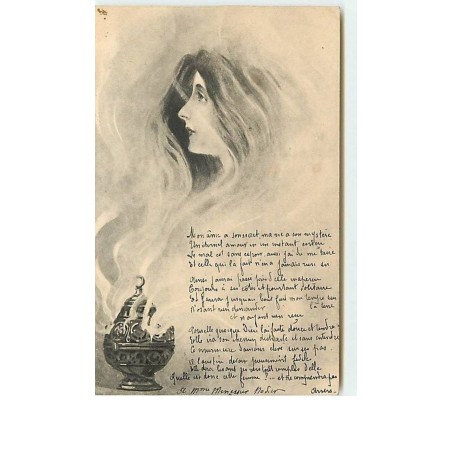 Mon âme a son secret, ma vie a son mystère
Un éternel amour en un instant conçu
Le mal est sans espoir, aussi j'ai dû me taire
Et celle qui l'a fait n'en a jamais rien su
Ainsi j'aurai passé près d'elle inaperçu
Toujours à ses côtés et pourtant solitaire
Et j'aurai jusqu'au bout fait mon temps sur
la terre
N'osant rien demander
et n'ayant rien reçu
Pour elle quoique Dieu l'ait faite douce et tendre
Elle ira son chemin distraite et sans entendre
Ce murmure d'amour élevé sur ses pas
A l'austère devoir pieusement fidèle
Elle dira lisant ces vers tout remplis d'elle
Quelle est donc cette femme ? - et ne comprendra pas
A Mme Menessier Nodier Arvers.